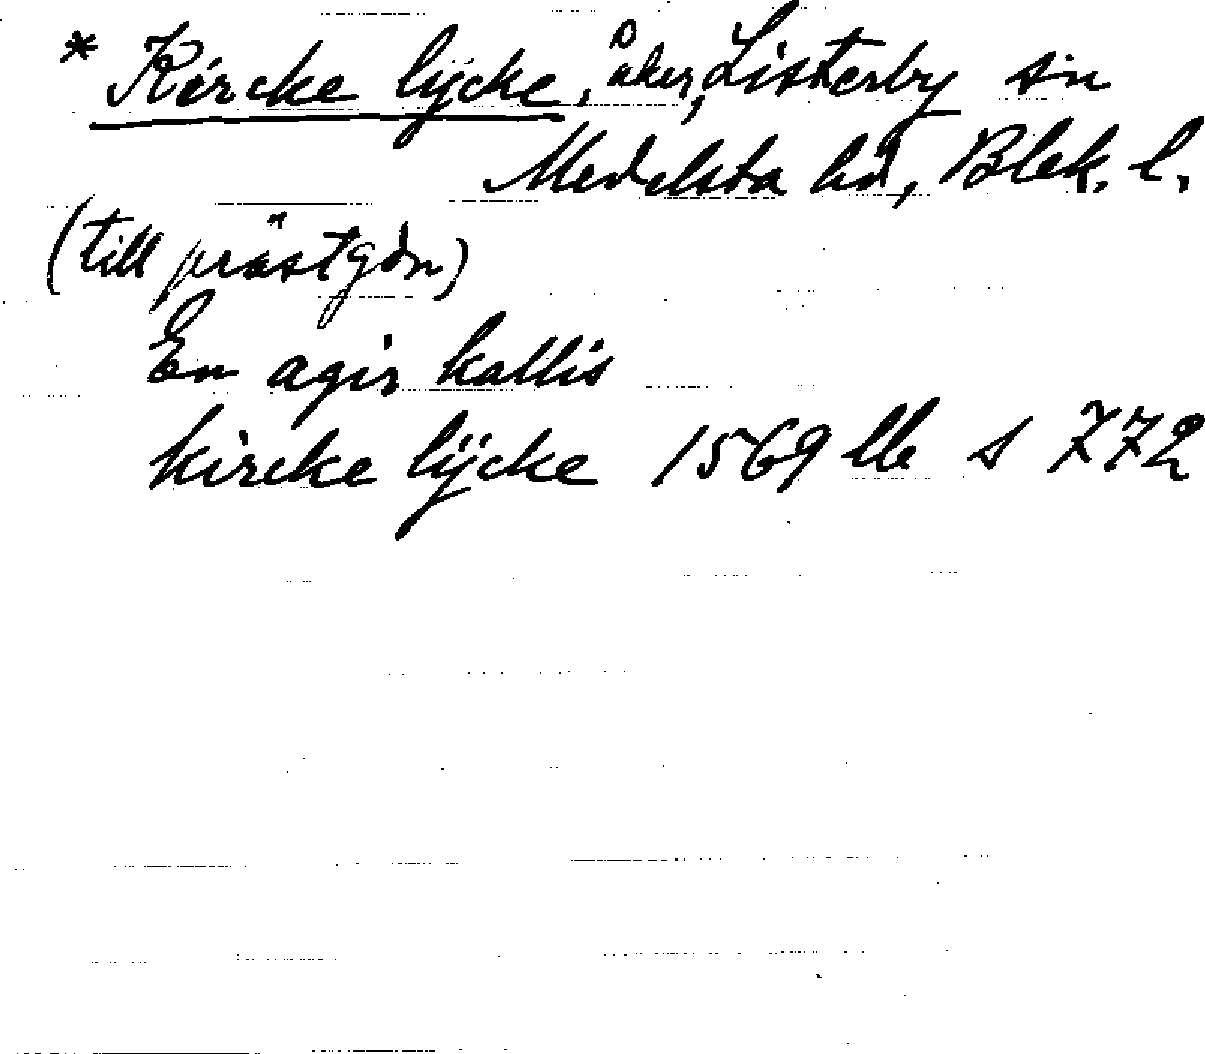 * Kircke lÿcke, åker, Listerby sn
Medelsta hd, Blek. l.
(till prästgdn)
En agir kallis
kircke lÿcke 1569 llb s 772